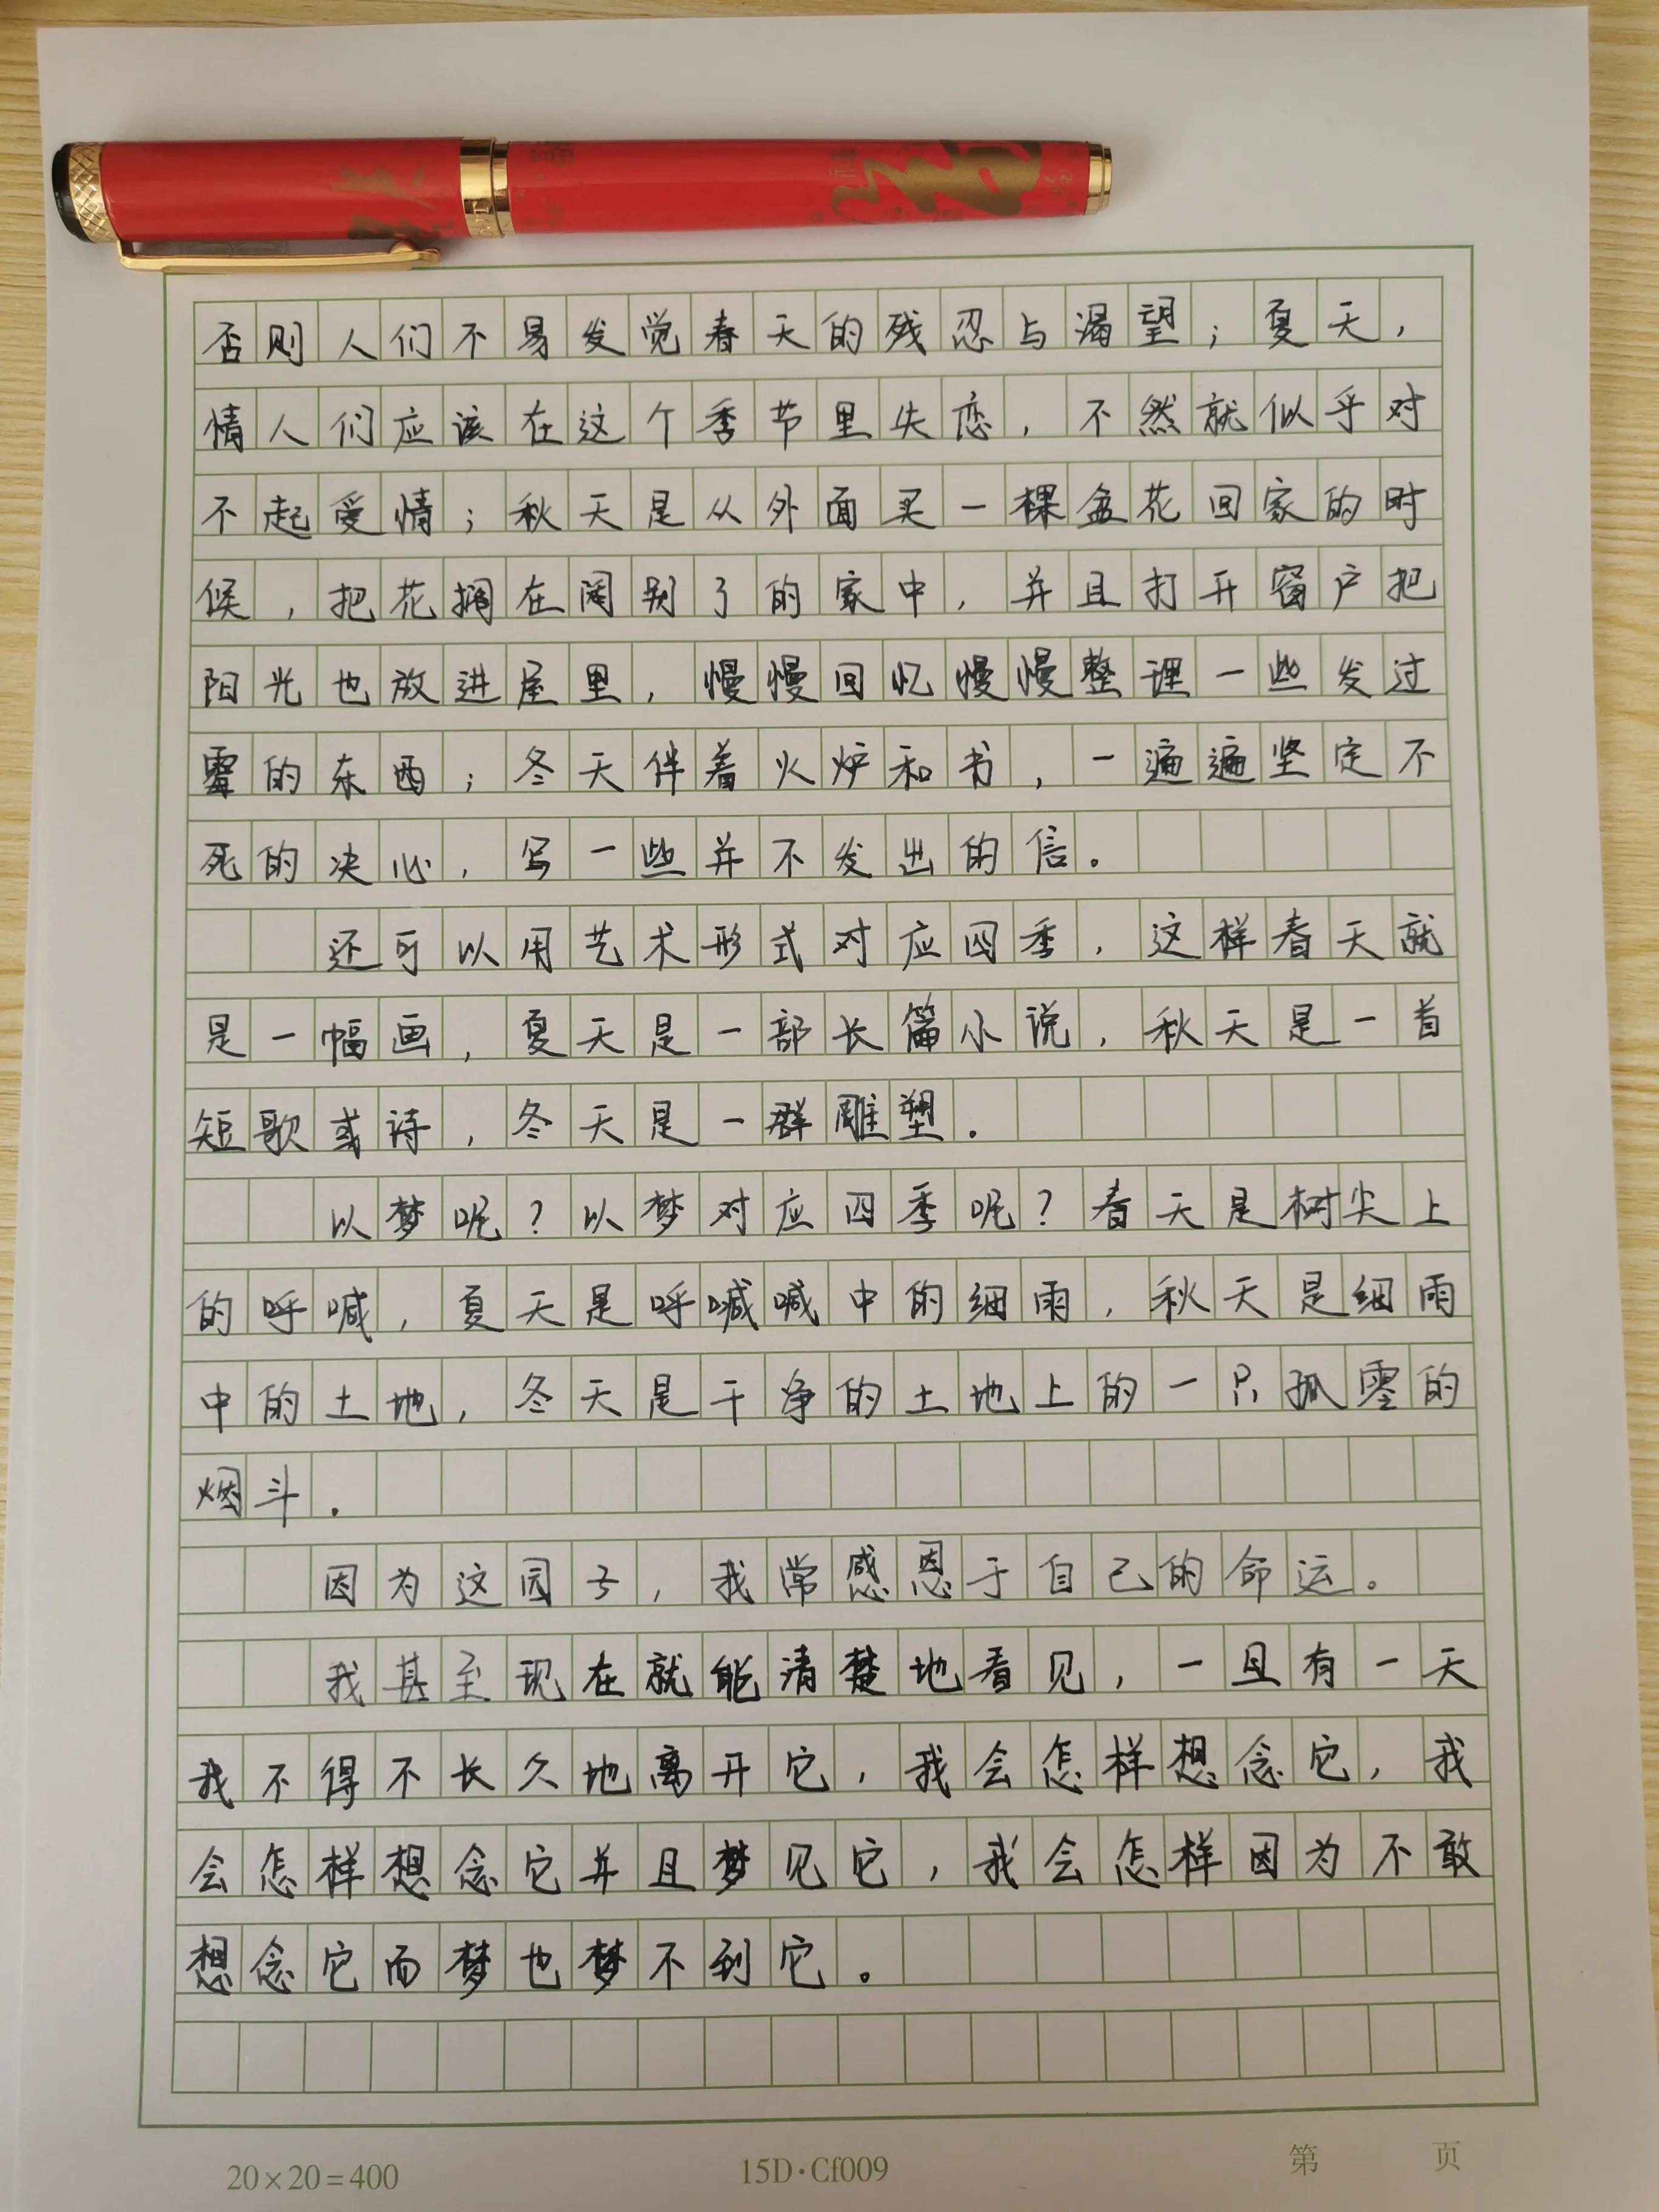 否则人们不易发觉春天的残忍与渴望；夏天，
情人们应该在这个季节里失恋，不然就似乎对
不起爱情；秋天是从外面买一棵盆花回家的时
候，把花搁在阔别了的家中，并且打开窗户把
阳光也放进屋里，慢慢回忆慢慢整理一些发过
霉的东西；冬天伴着火炉和书，一遍遍坚定不
死的决心，写一些并不发出的信。
还可以用艺术形式对应四季，这样春天就
是一幅画，夏天是一部长篇小说，秋天是一首
短歌或诗，冬天是一群雕塑。
以梦呢？以梦对应四季呢？春天是树尖上
的呼喊，夏天是呼喊喊中的细雨，秋天是细雨
中的土地，冬天是干净的土地上的一只孤零的
烟斗。
因为这园子，我常感恩于自己的命运。
我甚至现在就能清楚地看见，一旦有一天
我不得不长久地离开它，我会怎样想念它，我
会怎样想念它并且梦见它，我会怎样因为不敢
想念它而梦也梦不到它。
20×20=400 15D·Cf009 第 页